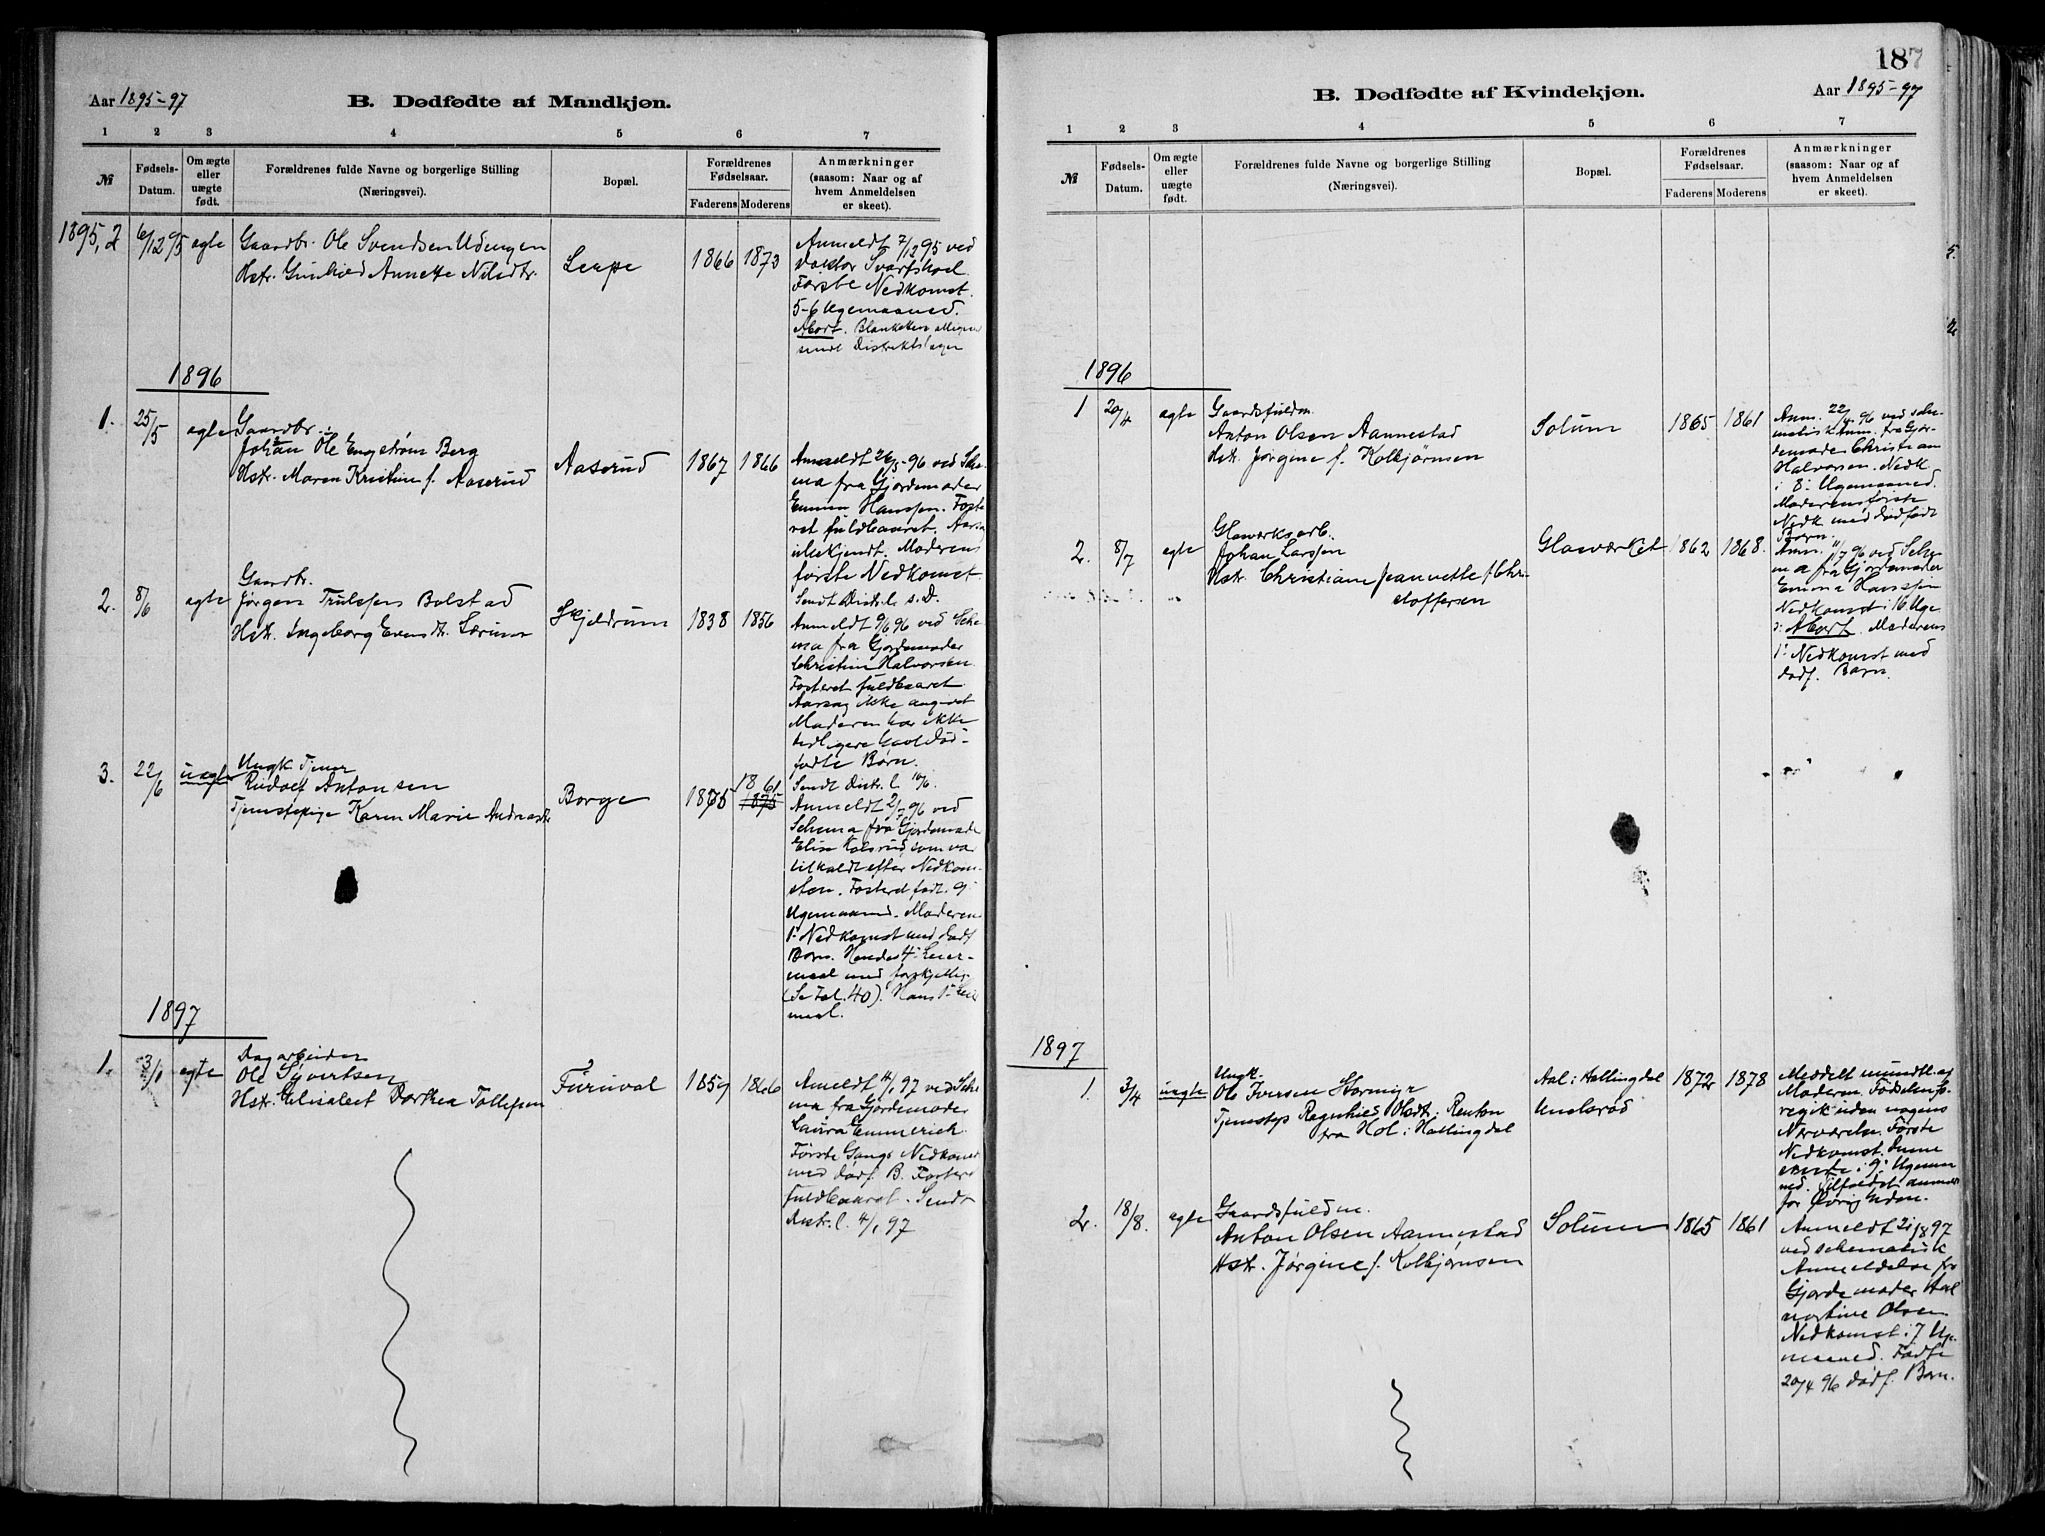 Aar 1895-97
B. Dødfødte af Mandkjøn.
1 2 3 4 5 6 7
№
Fødsels-
Datum.
Om ægte
eller
uægte
født.
Forældrenes fulde Navne og borgerlige Stilling
(Næringsvei).
Bopæl.
Forældrenes
Fødselsaar.
Faderens Moderens
Anmærkninger
(saasom: Naar og af
hvem Anmeldelsen
er skeet).
1895, 2 6/12 95 ægte
Gaardbr. Ole Svendsen
Hstr. Gunhild Annette Nilsdtr.
Lerpe
1866 1873
Anmeldt 7/12 95 ved
Doktor
Første Nedkomst.
5-6 Ugemaaned.
Abort. Blanketten
sendt Distriktslægen
1896
1. 25/5 ægte
Gaardbr.
Johan Ole Engstrøm Berg
Hstr. Maren Kristine f. Aaserud
Aaserud
1867 1866
Anmeldt 26/5-96 ved Sche-
ma fra Gjordemoder
Emma Hanssen. Foste-
ret fuldbaaret. Aarsag
ubekjendt. Moderens
første Nedkomst.
Sendt Distr. l. s. D.
2. 8/6 ægte
Gaardbr.
Jørgen Trulssen Bolstad
Hstr. Ingeborg Evensdtr. Lerum
Skjeldrum
1838 1856
Anmeldt 9/6 96 ved Sche-
ma fra Gjordemoder
Christine Halvorsen.
Fosteret fuldbaaret.
Aarsag ikke angivet
Moderen har ikke
tidligere havt død-
fødte Børn.
Sendt Distr. l. 10/6.
3. 22/6 uægte
Ungk. Tjener
Rudolf Antonsen
Tjenestepige Karen Marie Andreasdtr.
Borge
1875 1861
1875
Anmeldt 2/7 96 ved
Schema fra Gjordemoder
Elise Kolsrud, som var
tilkaldt efter Nedkom-
sten. Fosteret født i 9
Ugemaaned. Moderens
1ste Nedkomst med dødf.
Barn. Hendes 4de Leier-
maal med forskjellig
(Se Fol. 40). Hans 1ste Leier
maal.
1897
1. 3/1 ægte
Dagarbeider
Ole Syvertsen
Hstr. Elisabet Dorthea Tollefsen
Furuval
1859 1866
Anmeldt 4/1 97 ved Sche-
ma fra Gjordemoder
Laura Emmerich.
Første Gangs Nedkomst
med dødf. B. Fosteret
fuldbaaret. Sendt
Distr. l. 4/1 97
187
B. Dødfødte af Kvindekjøn.
Aar 1895-97
1 2 3 4 5 6 7
№
Fødsels-
Datum.
Om ægte
eller
uægte
født.
Forældrenes fulde Navne og borgerlige Stilling
(Næringsvei).
Bopæl.
Forældrenes
Fødselsaar.
Faderens Moderens
Anmærkninger
(saasom: Naar og af
hvem Anmeldelsen
er skeet).
1896
1 20/4 ægte
Gaardsfuldm.
Anton Olsen Aannestad
Hstr. Jørgine f. Kolbjørnsen
Solum
1865 1861
Anm. 22/4 96 ved sche-
matisk Anm. fra Gjor-
demoder Christiane
Halvorsen. Nedk.
i 8de Ugemaaned.
Moderens første
Nedk. med dødfødt
Barn.
2. 8/7 ægte
Glasværksarb.
Johan Larssen
Hstr. Christiane Jeanvette f. Chri-
stoffersen
Glasværket
1862 1868.
Anm. 11/7 96 ved Sche-
ma fra Gjordemoder
Emma Hanssen
Nedkomst i 16 Uge
Abort. Moderens
1ste Nedkomst med
dødf. Barn.
1897
1. 3/4 uægte
Ungk.
Ole Iversen
Tjenestep. Ragnhild Olsdtr.
fra Hol i Hallingdal
Aal i Hallingdal
1872 1878
Meddelt mundtl. af
Moderen. Fødselen fo-
regik uden nogens
Nærværelse. Første
Nedkomst.
i 9de Ugemaa
ned.
2. 18/8. ægte
Gaardsfuldm.
Anton Olsen Aannestad
Hstr. Jørgine f. Kolbjørnsen
Solum
1865 1861
Anmeldt 21/8 97
ved schematisk
Anmeldelse fra
Gjordemoder
Olsen
Nedkomst i 7 Ug.
maaned. Fødte
20/4 96 dødf. Barn.